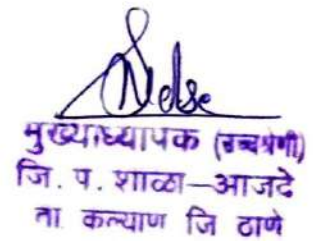 मुख्याध्यापक (उच्चश्रेणी)
जि. प. शाळा—आजदे
ता. कल्याण जि ठाणे